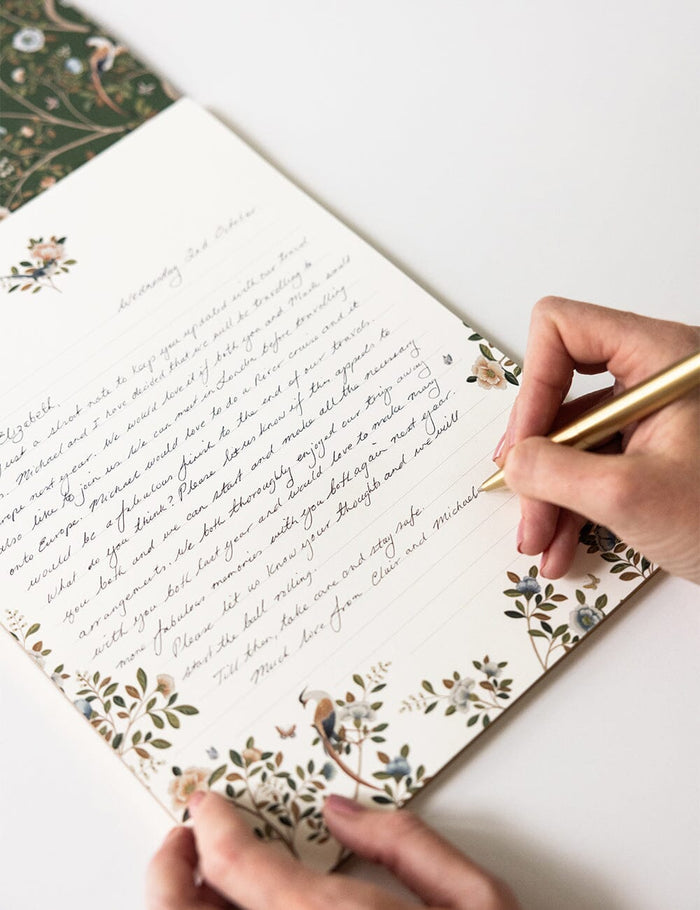 Wednesday 2nd October
Elizabeth,
Just a short note to keep you updated with our travel
Michael and I have decided that we will be travelling to
Europe next year. We would love it if both you and Mark would
also like to join us. We can meet in London before travelling
onto Europe. Michael would love to do a River cruise and it
would be a fabulous finish to the end of our travels.
What do you think? Please let us know if this appeals to
you both and we can start and make all the necessary
arrangements. We both thoroughly enjoyed our trip away
with you both last year and would love to make many
more fabulous memories with you both again next year.
Please let us know your thoughts and we will
start the ball rolling.
Till then, take care and stay safe.
Much love from Clair and Michael